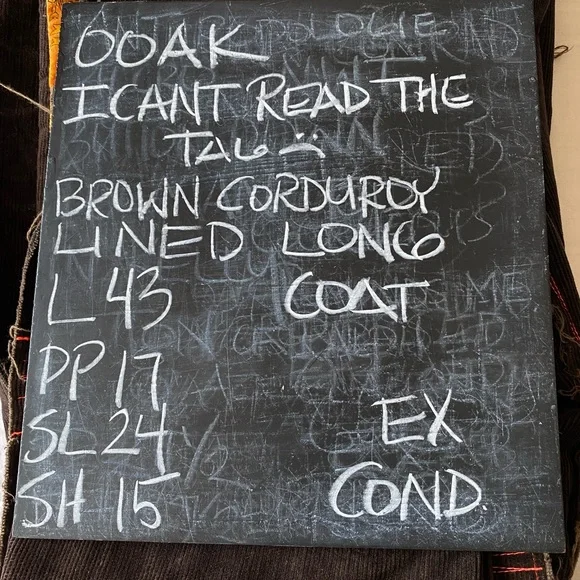 OOAK
I CANT READ THE
TAG :(
BROWN CORDUROY
LINED LONG
L 43 COAT
PP 17
SL 24 EX
SH 15 COND.